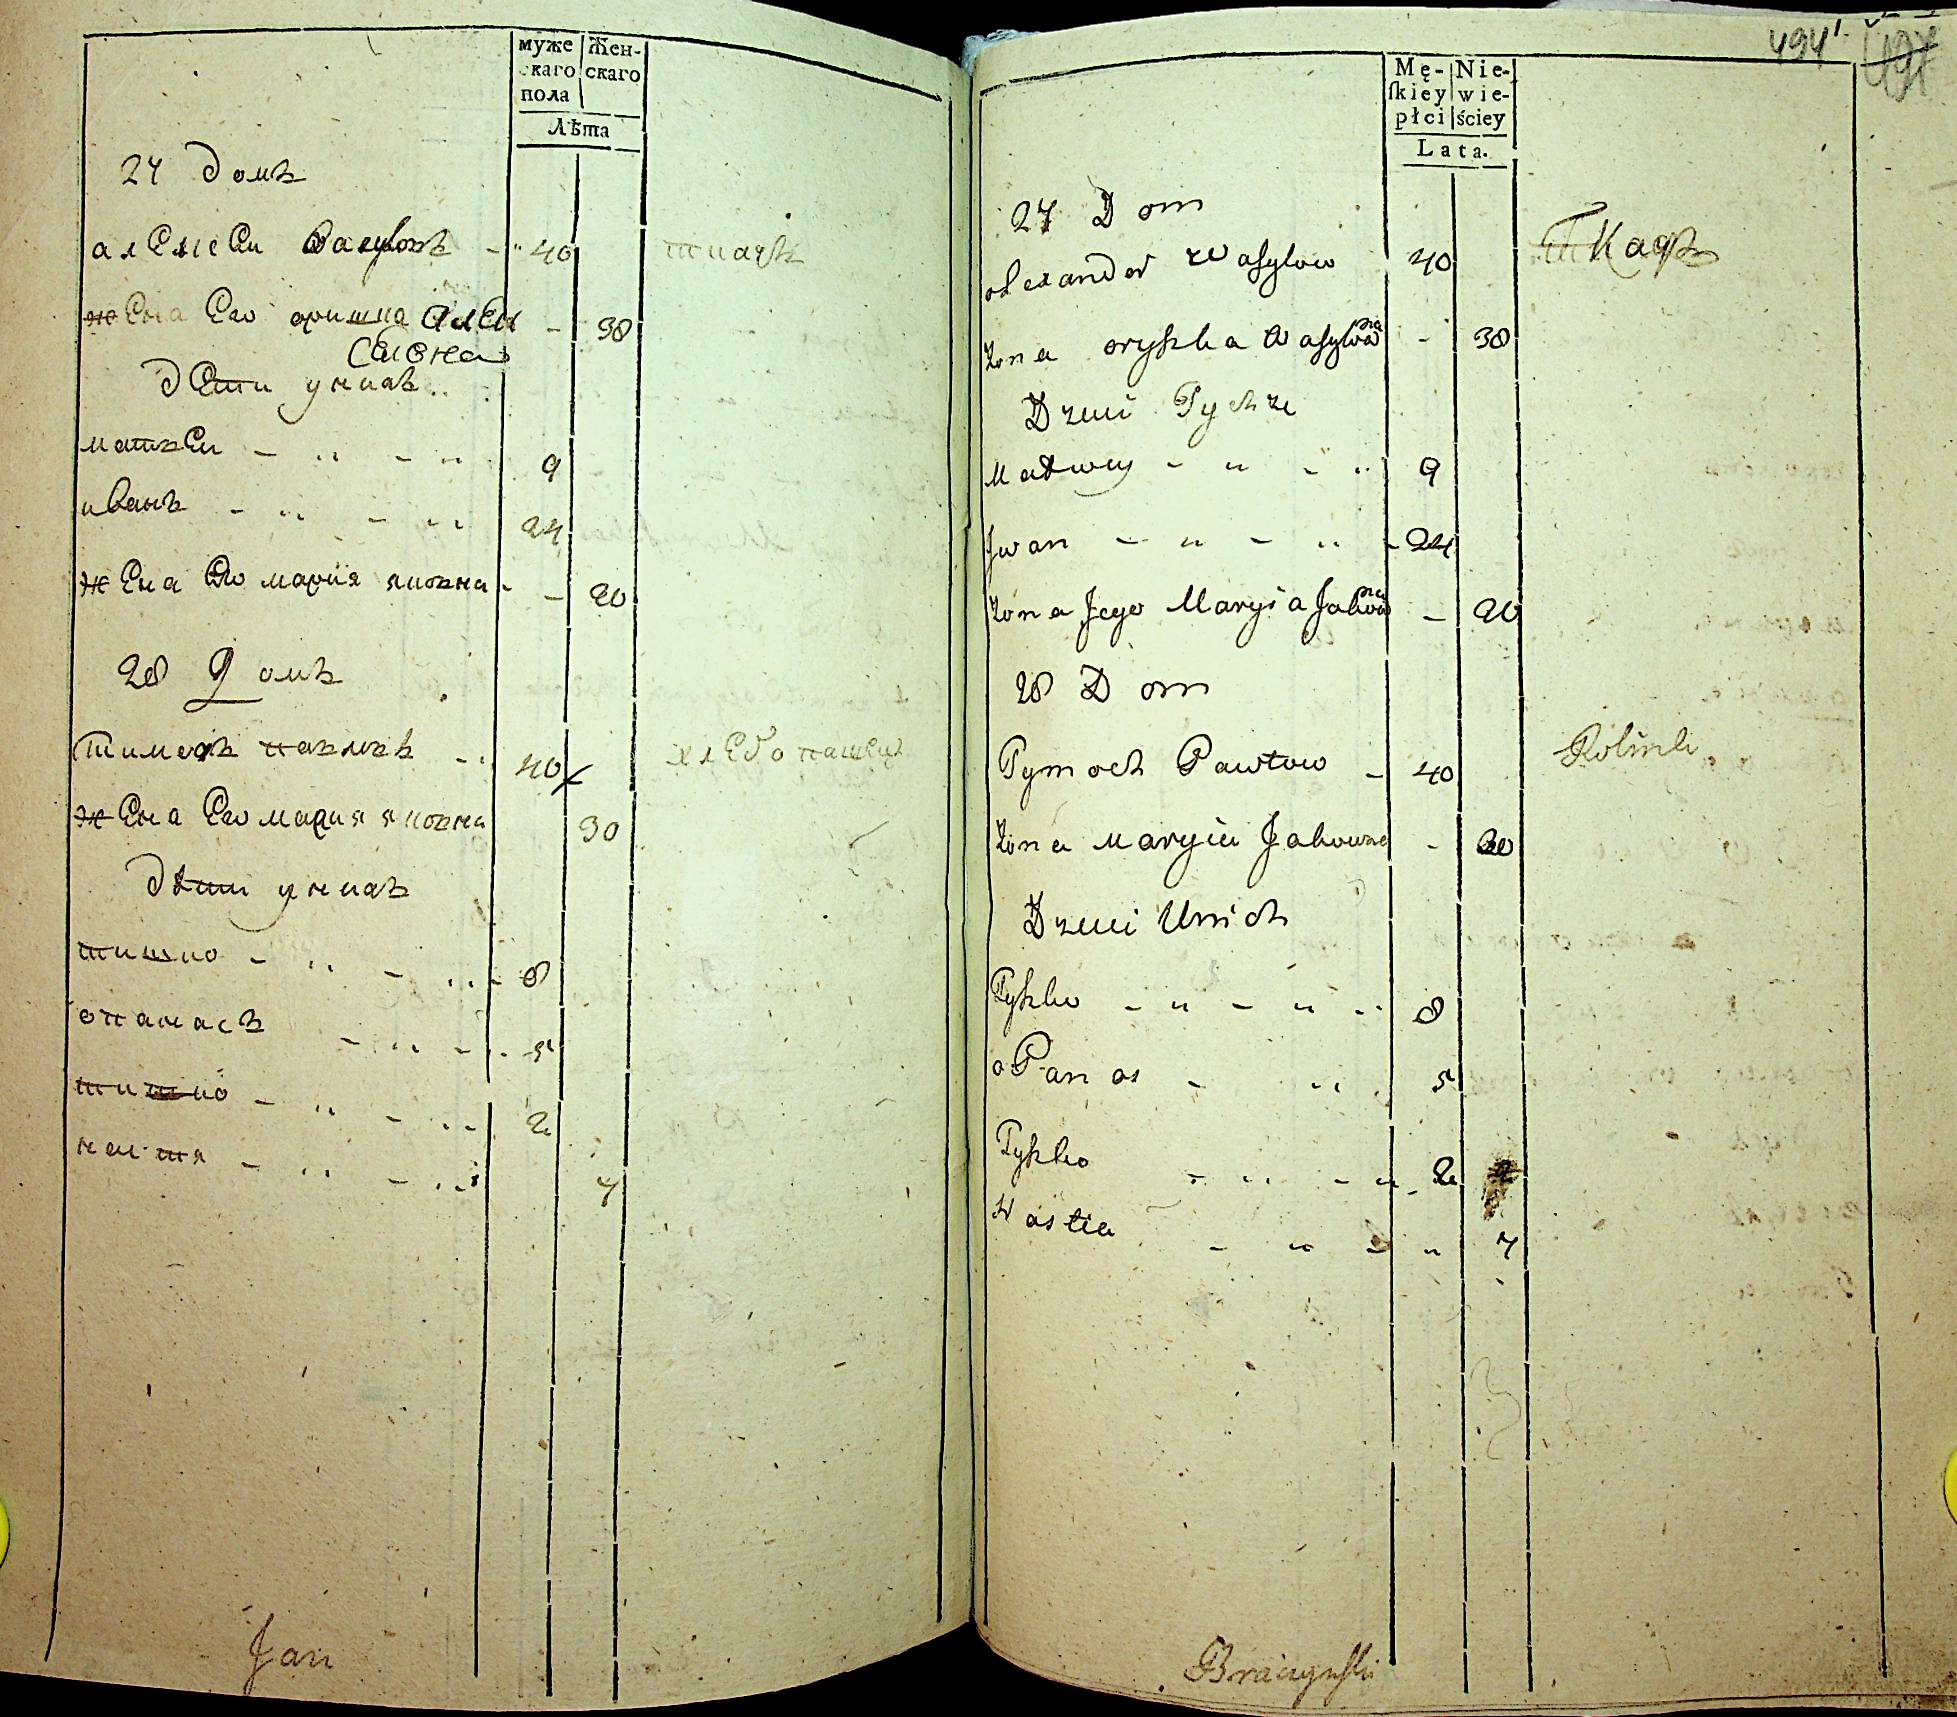 муже Жен-
скаго скаго
пола
Лѣта
27 домъ
алексеи Васуловъ - " 40 ткачъ
жена Его оришка Алек - 38
сеивна
дети у нихъ
матвеи - " - " 9
иванъ - " - " 24
жена Его мария яковна - - 20
28 Домъ
тимохъ павловъ - " 40 хлебопашецъ
жена Его мария яковна 30
дѣти у нихъ
тишко - " - " - 8
опанасъ - " - " 5
тишко - " - " 2
настя - " - " 7
Jan
494
Mę- Nie-
ſkiey wie-
płci ściey
Lata.
27 Dom
olexander Wasylow 40 Ткачъ
Żona oryszka Wasylowna - 38
Dzieci Tychże
Matwiey - " - " 9
Jwan - " - " - 24
Żona Jego Marysia Jakowna - 20
28 Dom
Tymoch Pawłow - 40 Rolnik
Żona Maryia Jakowna - 30
Dzieci U nich
Tyszko - " - " - " 8
oPanas - " 5
Tyszko - " - " - 2
Nastia - " - " 7
Braczynski